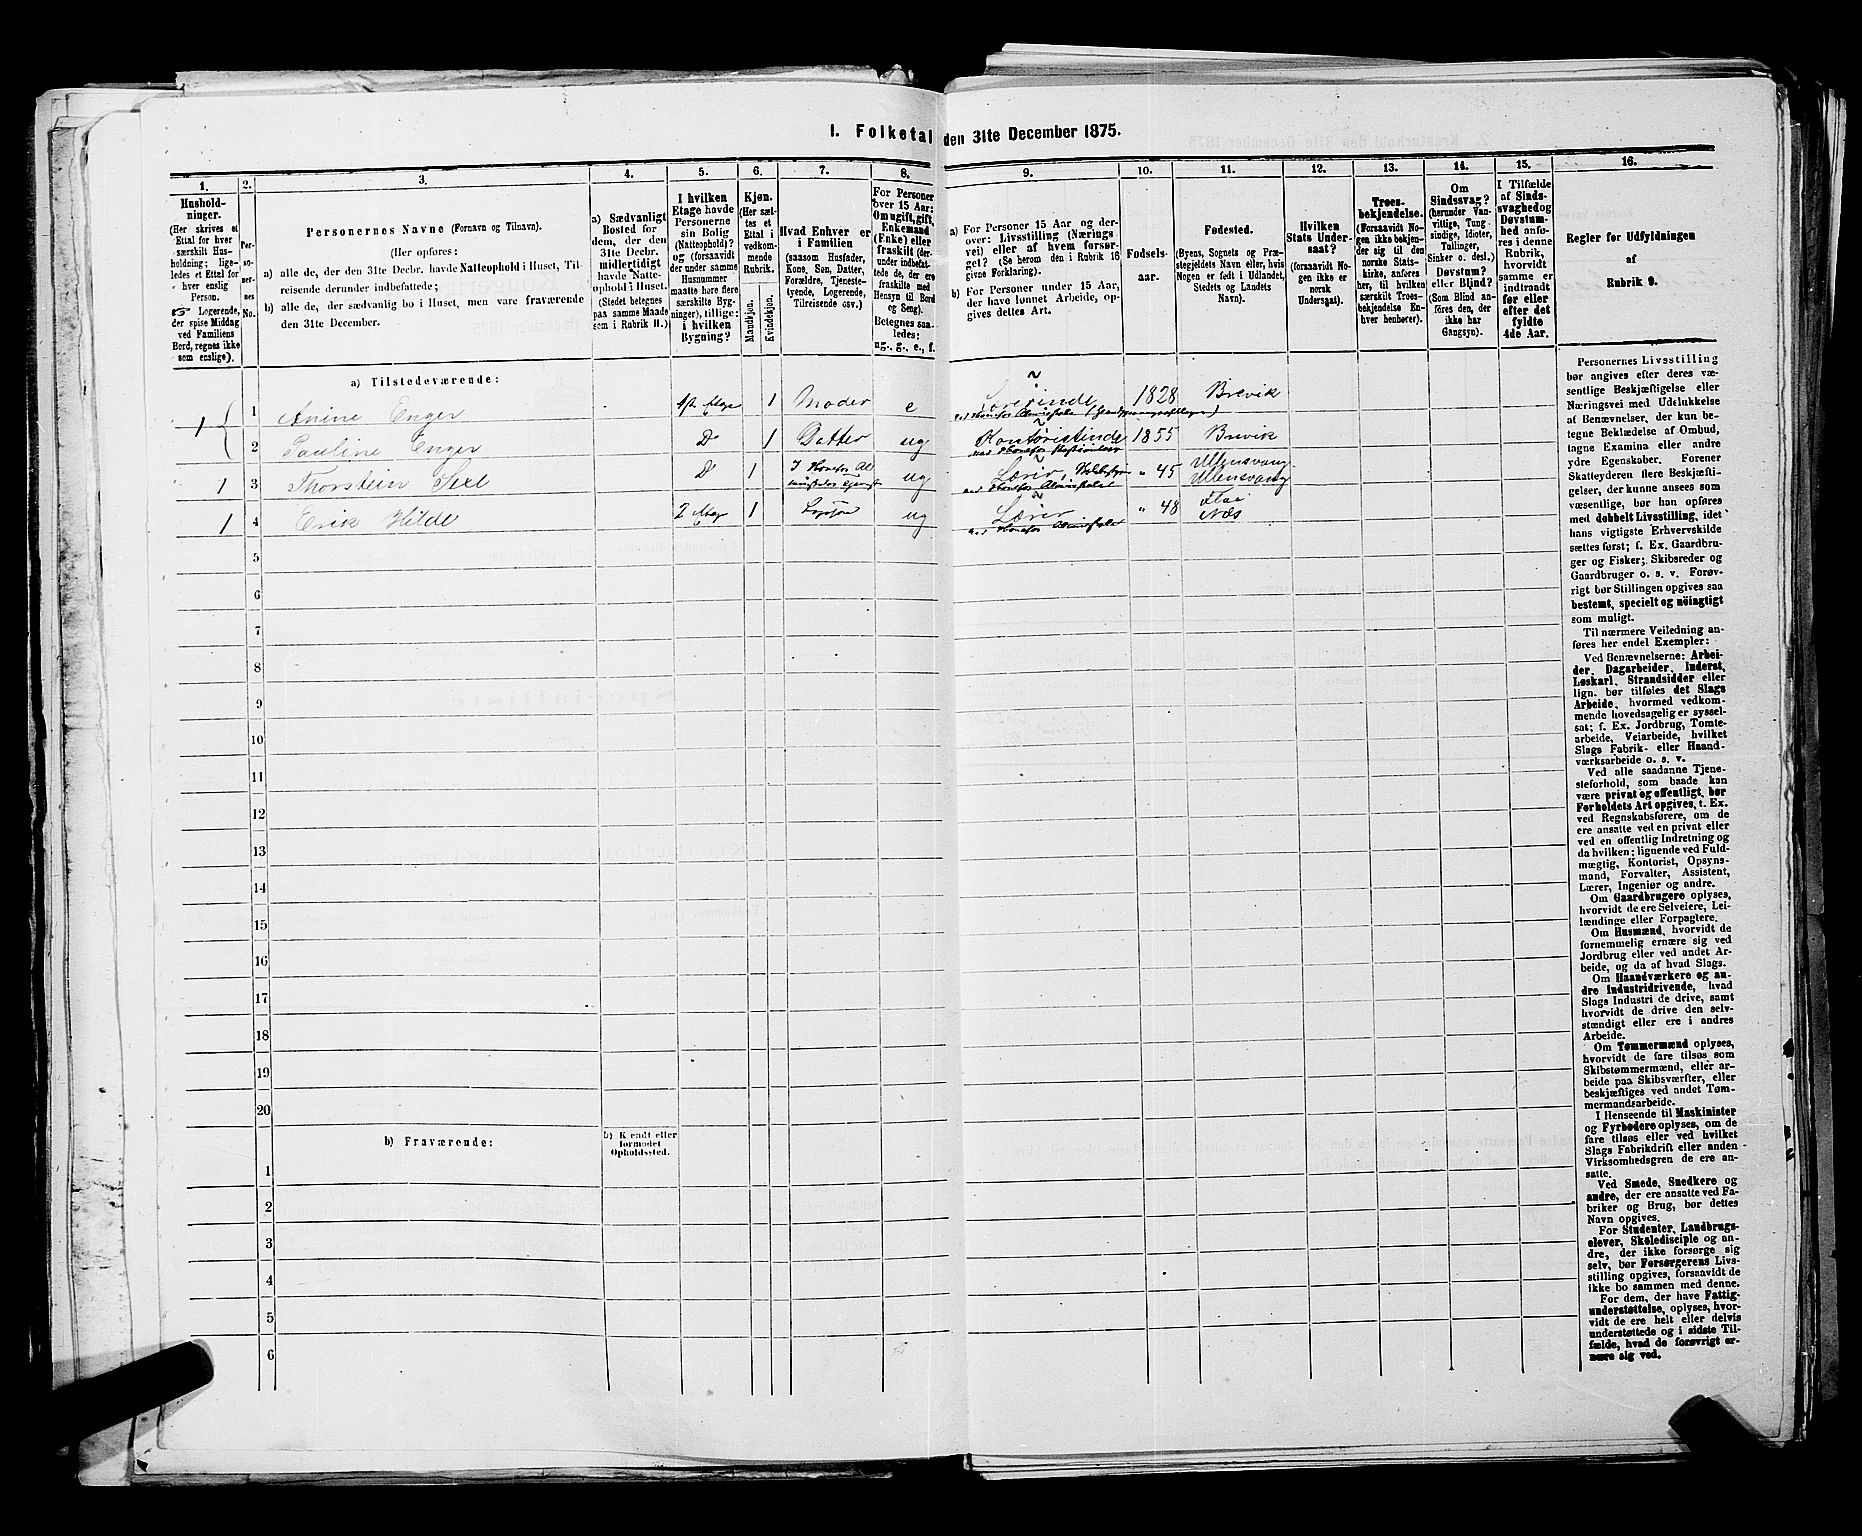 1. Folketal den 31te December 1875.
1.
Hushold-
ninger.
(Her skrives et
Ettal for hver
særskilt Hus-
holdning; lige-
ledes et Ettal for
hver enslig
Person.
☞ Logerende,
der spise Middag
ved Familiens
Bord, regnes ikke
som enslige).
2.
Per-
so-
ner-
nes
No.
3.
Personernes Navne (Fornavn og Tilnavn).
(Her opføres:
a) alle de, der den 31te Decbr. havde Natteophold i Huset, Til-
reisende derunder indbefattede;
b) alle de, der sædvanlig bo i Huset, men vare fraværende
den 31te December.
4.
a) Sædvanligt
Bosted for
dem, der den
31te Decbr.
midlertidigt
havde Natte-
ophold i Huset.
(Stedet betegnes
paa samme Maade
som i Rubrik 11.)
5.
I hvilken
Etage havde
Personerne
sin Bolig
(Natteophold)?
og (forsaavidt
der under samme
Husnummer
maatte høre flere
særskilte Byg-
ninger), tillige:
i hvilken
Bygning?
6.
Kjøn.
(Her sæt-
tes et
Ettal i
vedkom-
mende
Rubrik.
Mandkjøn.
Kvindekjøn.
7.
Hvad Enhver er
i Familien
(saasom Husfader,
Kone, Søn, Datter,
Forældre, Tjeneste-
tyende, Logerende,
Tilreisende osv.)
8.
For Personer
over 15 Aar:
Om ugift, gift,
Enkemand
(Enke) eller
fraskilt (der-
under indbefat-
tede de, der ere
fraskilte med
Hensyn til Bord
og Seng).
Betegnes saa-
ledes:
ug., g., e., f.
9.
a) For Personer 15 Aar og der-
over: Livsstilling (Nærings-
vei) eller af hvem forsør-
get? (Se herom den i Rubrik 16
givne Forklaring).
b) For Personer under 15 Aar,
der have lønnet Arbeide, op-
gives dettes Art.
10.
Fødsels-
aar.
11.
Fødested.
(Byens, Sognets og Præ-
stegjeldets Navn eller, hvis
Nogen er født i Udlandet,
Stedets og Landets
Navn).
12.
Hvilken
Stats Under-
saat?
(forsaavidt No-
gen ikke er
norsk
Undersaat).
13.
Troes-
bekjendelse.
(Forsaavidt No-
gen ikke bekjen-
der sig til den
norske Stats-
kirke, anføres
her, til hvilken
særskilt Troes-
bekjendelse En-
hver henhører).
14.
Om
Sindssvag?
(herunder Van-
vittige, Tung-
sindige, Idioter,
Tullinger,
Sinker o. desl.)
Døvstum?
eller Blind?
(Som Blind an-
føres den, der
ikke har
Gangsyn).
15.
I Tilfælde
af Sinds-
svaghed og
Døvstum-
hed anfø-
res i denne
Rubrik,
hvorvidt
samme er
indtraadt
før eller
efter det
fyldte
4de Aar.
16.
Regler for Udfyldningen
af
Rubrik 9.
a) Tilstedeværende:
1 1 Anine Enger 1ste Etage 1 Moder e Lærerinde 1828 Brevik
ved Hønefos Almueskole
2 Pauline Enger Do 1 Datter ug Kontoristinde 1855 Brevik
1 3 Thorstein Sexe Do 1 ug Lærer, " 45 Ullensvang
ved Hønefos Almueskole Ullensvang
1 4 Erik Hilde 2 Etage 1 ug Lærer " 48 Flaa
ved Hønefos Almueskole Næs
5
6
7
8
9
10
11
12
13
14
15
16
17
18
19
20
b) Fraværende:
b) Kjendt eller
formodet
Opholdssted.
1
2
3
4
5
6
Personernes Livsstilling
bør angives efter deres væ-
sentlige Beskjæftigelse eller
Næringsvei med Udelukkelse
af Benævnelser, der kun be-
tegne Beklædelse af Ombud,
tagne Examina eller andre
ydre Egenskaber. Forener
Skatteyderen flere Beskjæfti-
gelser, der kunne ansees som
væsentlige, bør han opføres
med dobbelt Livsstilling, idet
hans vigtigste Erhvervskilde
sættes først; f. Ex. Gaardbru-
ger og Fisker; Skibsreder og
Gaardbruger o. s. v. Forøv-
rigt bør Stillingen opgives saa
bestemt, specielt og nöiagtigt
som muligt.
Til nærmere Veiledning an-
føres her endel Exempler:
Ved Benævnelserne: Arbei-
der, Dagarbeider, Inderst,
Løskarl, Strandsidder eller
lign. bør tilføies det Slags
Arbeide, hvormed vedkom-
mende hovedsagelig er syssel-
sat; f. Ex. Jordbrug, Tomte-
arbeide, Veiarbeide, hvilket
Slags Fabrik- eller Haand-
værksarbeide o. s. v.
Ved alle saadanne Tjene-
steforhold, som baade kan
være privat og offentligt, bør
Forholdets Art opgives, t. Ex.
ved Regnskabsførere, om de
ere ansatte ved en privat eller
ved en offentlig Indretning og
da hvilken; lignende ved Fuld-
mægtig, Kontorist, Opsyns-
mand, Forvalter, Assistent,
Lærer, Ingeniør og andre.
Om Gaardbrugere oplyses,
hvorvidt de ere Selveiere, Lei-
lændinge eller Forpagtere.
Om Husmænd, hvorvidt de
fornemmelig ernære sig ved
Jordbrug eller ved andet Ar-
beide, og da af hvad Slags.
Om Haandværkere og an-
dre Industridrivende, hvad
Slags Industri de drive, samt
hvorvidt de drive den selv-
stændigt eller ere i andres
Arbeide.
Om Tømmermænd oplyses,
hvorvidt de fare tilsøs som
Skibstømmermænd, eller ar-
beide paa Skibsværfter, eller
beskjæftiges ved andet Tøm-
mermandsarbeide.
I Henseende til Maskinister
og Fyrbødere oplyses, om de
fare tilsøs eller ved hvilket
Slags Fabrikdrift eller anden
Virksomhedsgren de ere an-
satte.
Ved Smede, Snedkere og
andre, der ere ansatte ved Fa-
briker og Brug, bør dettes
Navn opgives.
For Studenter, Landbrugs-
elever, Skoledisciple og an-
dre, der ikke forsørge sig
selv, bør Forsørgerens Livs-
stilling opgives, forsaavidt de
ikke bo sammen med denne.
For dem, der have Fattig-
understøttelse, oplyses, hvor-
vidt de ere helt eller delvis
understøttede og i sidste Til-
fælde, hvad de forøvrigt er-
nære sig ved.